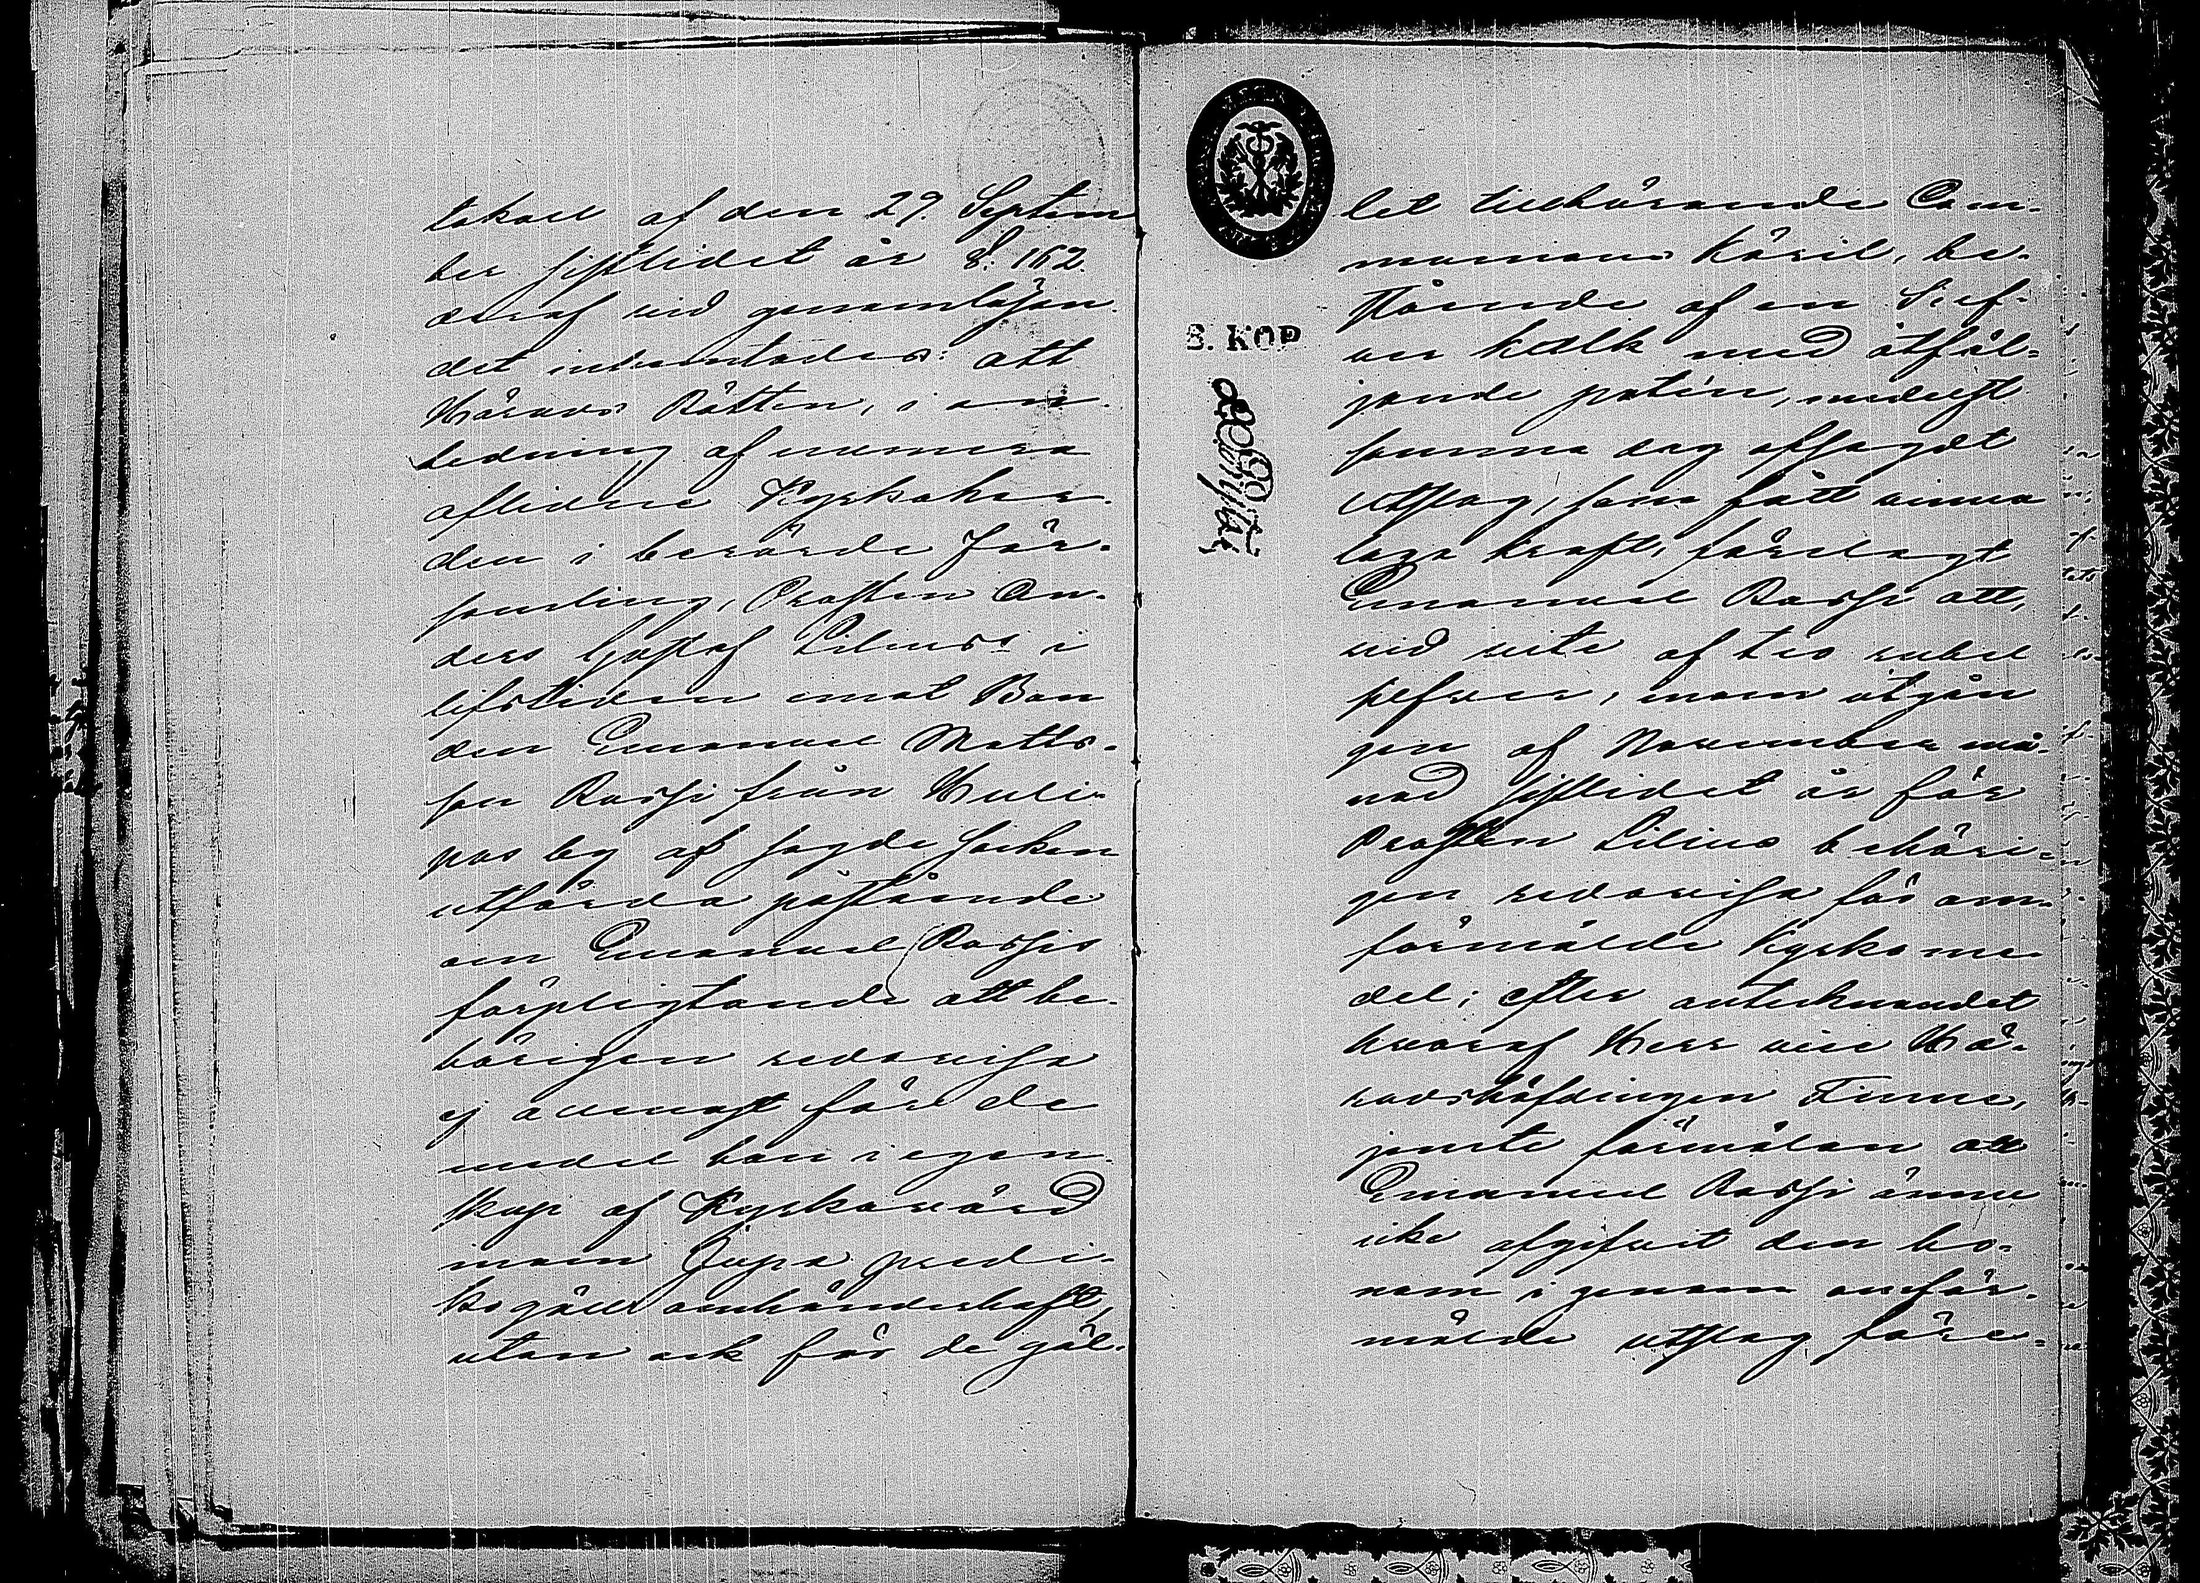 tokoll af den 29. Septem
ber sistlidet år §. 162.
deraf vid genomläsan-
det inhemtades: att
Härads Rätten, i an-
ledning af numera
aflidne Kyrkoher-
den i berörde för-
samling, Prosten An-
ders Gustaf Lilius i
lifstiden emot Bon
den Emanuel Matts-
son Rossi från
by af sagde socken
utförda påstående
om Emanuel Rossis
förpligtande att be-
hörigen redovisa
ej allenast för de
medel han i egen-
skap af Kyrkovärd
inom Jupa predi-
kogäll omhänderhaft,
utan ock för de gäl-
let tillhörande Com-
munions käril, be-
stående af en Silf-
ver kalk med åtföl-
jande patén, medelst
samma dag afsagdt
utslag, som fått vinna
laga kraft, förelagt
Emanuel Rossi att,
vid vite af tio rubel
silfver, inom utgån
gen af November må-
nad sistlidet år för
Prosten Lilius behöri-
gen redovisa för om-
förmälde Kyrkome-
del; efter antecknandet
hvaraf Herr vice Hä-
radshöfdingen Finne,
jemte förmälan att
Emanuel Rossi ännu
icke afgifvit den ho-
nom igenom omför-
mälde utslag före-
S. KOP.